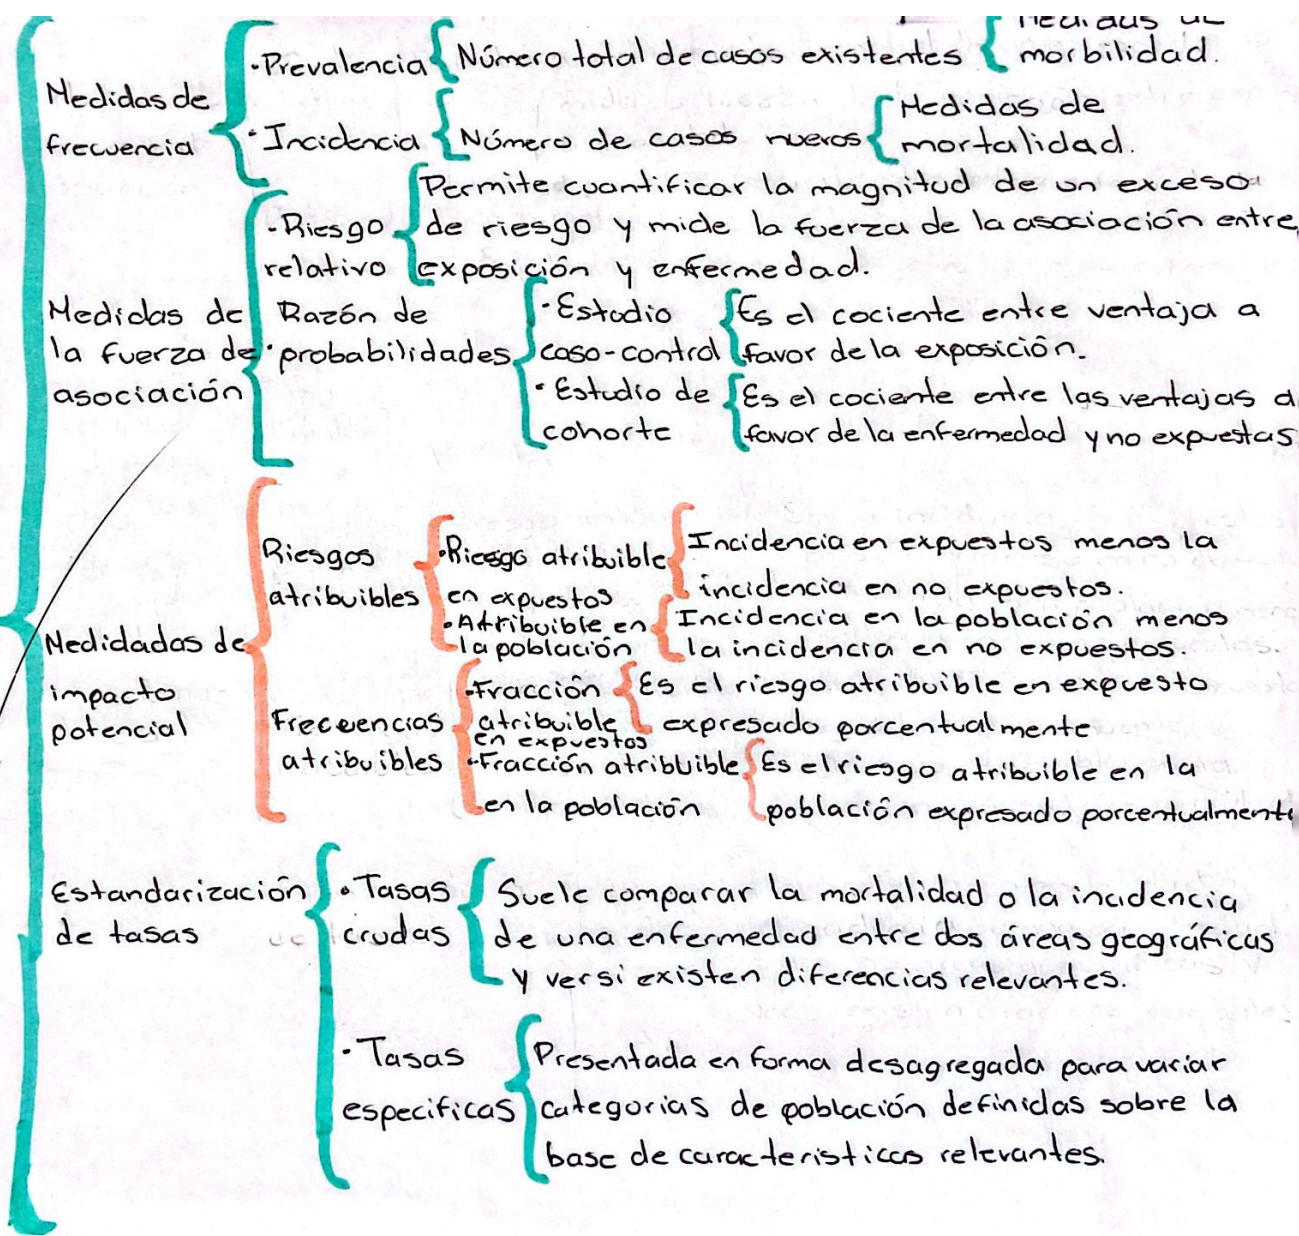 Medidas de
frecuencia
·Prevalencia
Número total de casos existentes
morbilidad.
· Incidencia
Número de casos nuevos
Medidas de
mortalidad.
Medidas de
la fuerza de
asociación
·Riesgo
relativo
Permite cuantificar la magnitud de un exceso
de riesgo y mide la fuerza de la asociación entre
exposición y enfermedad.
Razón de
·probabilidades
·Estudio
caso-control
Es el cociente entre ventaja a
favor de la exposición.
· Estudio de
cohorte
Es el cociente entre las ventajas a
favor de la enfermedad y no expuestas
Medidadas de
impacto
potencial
Riesgos
atribuibles
·Riesgo atribuible
en expuestos
Incidencia en expuestos menos la
incidencia en no expuestos.
·Atribuible en
la población
Incidencia en la población menos
la incidencia en no expuestos.
Frecuencias
atribuibles
·Fracción
atribuible
en expuestos
Es el riesgo atribuible en expuesto
expresado porcentualmente
·Fracción atribuible
en la población
Es el riesgo atribuible en la
población expresado porcentualmente
Estandarización
de tasas
·Tasas
crudas
Suele comparar la mortalidad o la incidencia
de una enfermedad entre dos áreas geográficas
y ver si existen diferencias relevantes.
·Tasas
especificas
Presentada en forma desagregada para variar
categorias de población definidas sobre la
base de caracteristicas relevantes.